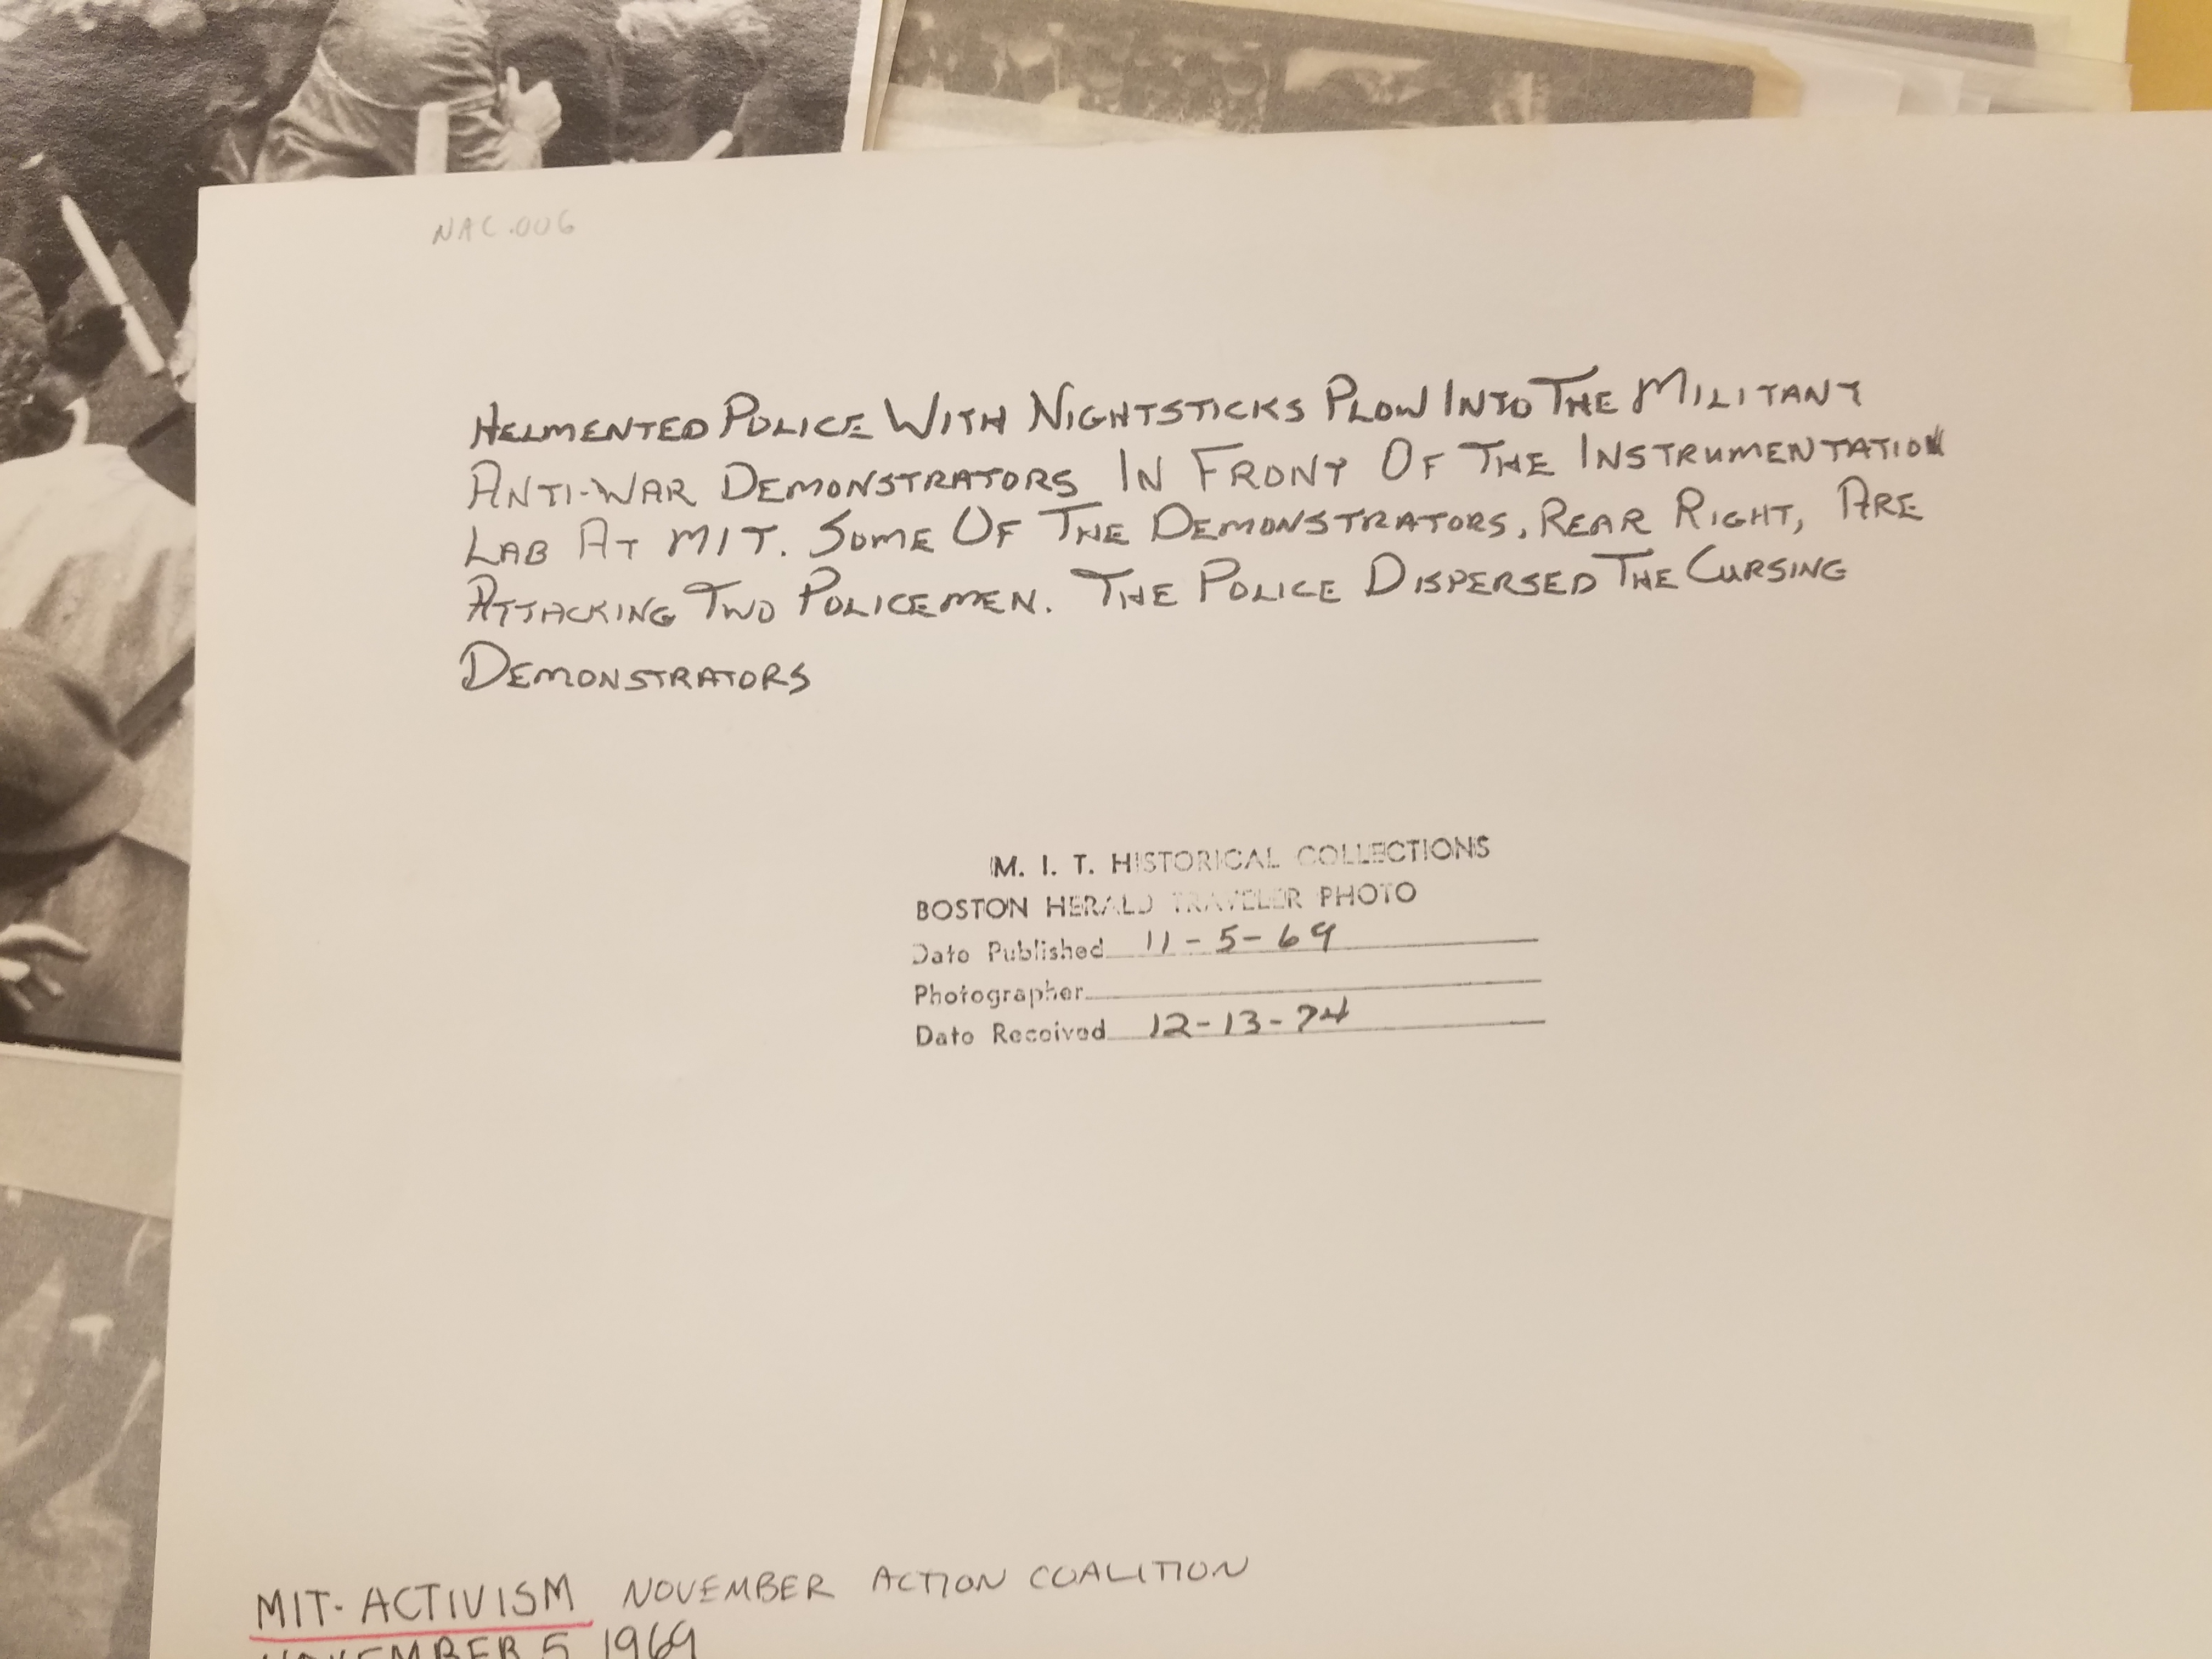 NAC.006
HELMENTED POLICE WITH NIGHTSTICKS PLOW INTO THE MILITANT
ANTI-WAR DEMONSTRATORS IN FRONT OF THE INSTRUMENTATION
LAB AT MIT. SOME OF THE DEMONSTRATORS, REAR RIGHT, ARE
ATTACKING TWO POLICEMEN. THE POLICE DISPERSED THE CURSING
DEMONSTRATORS
M. I. T. HISTORICAL COLLECTIONS
BOSTON HERALD TRAVELER PHOTO
Date Published 11-5-69
Photographer
Date Received 12-13-74
MIT-ACTIVISM NOVEMBER ACTION COALITION
NOVEMBER 5 1969